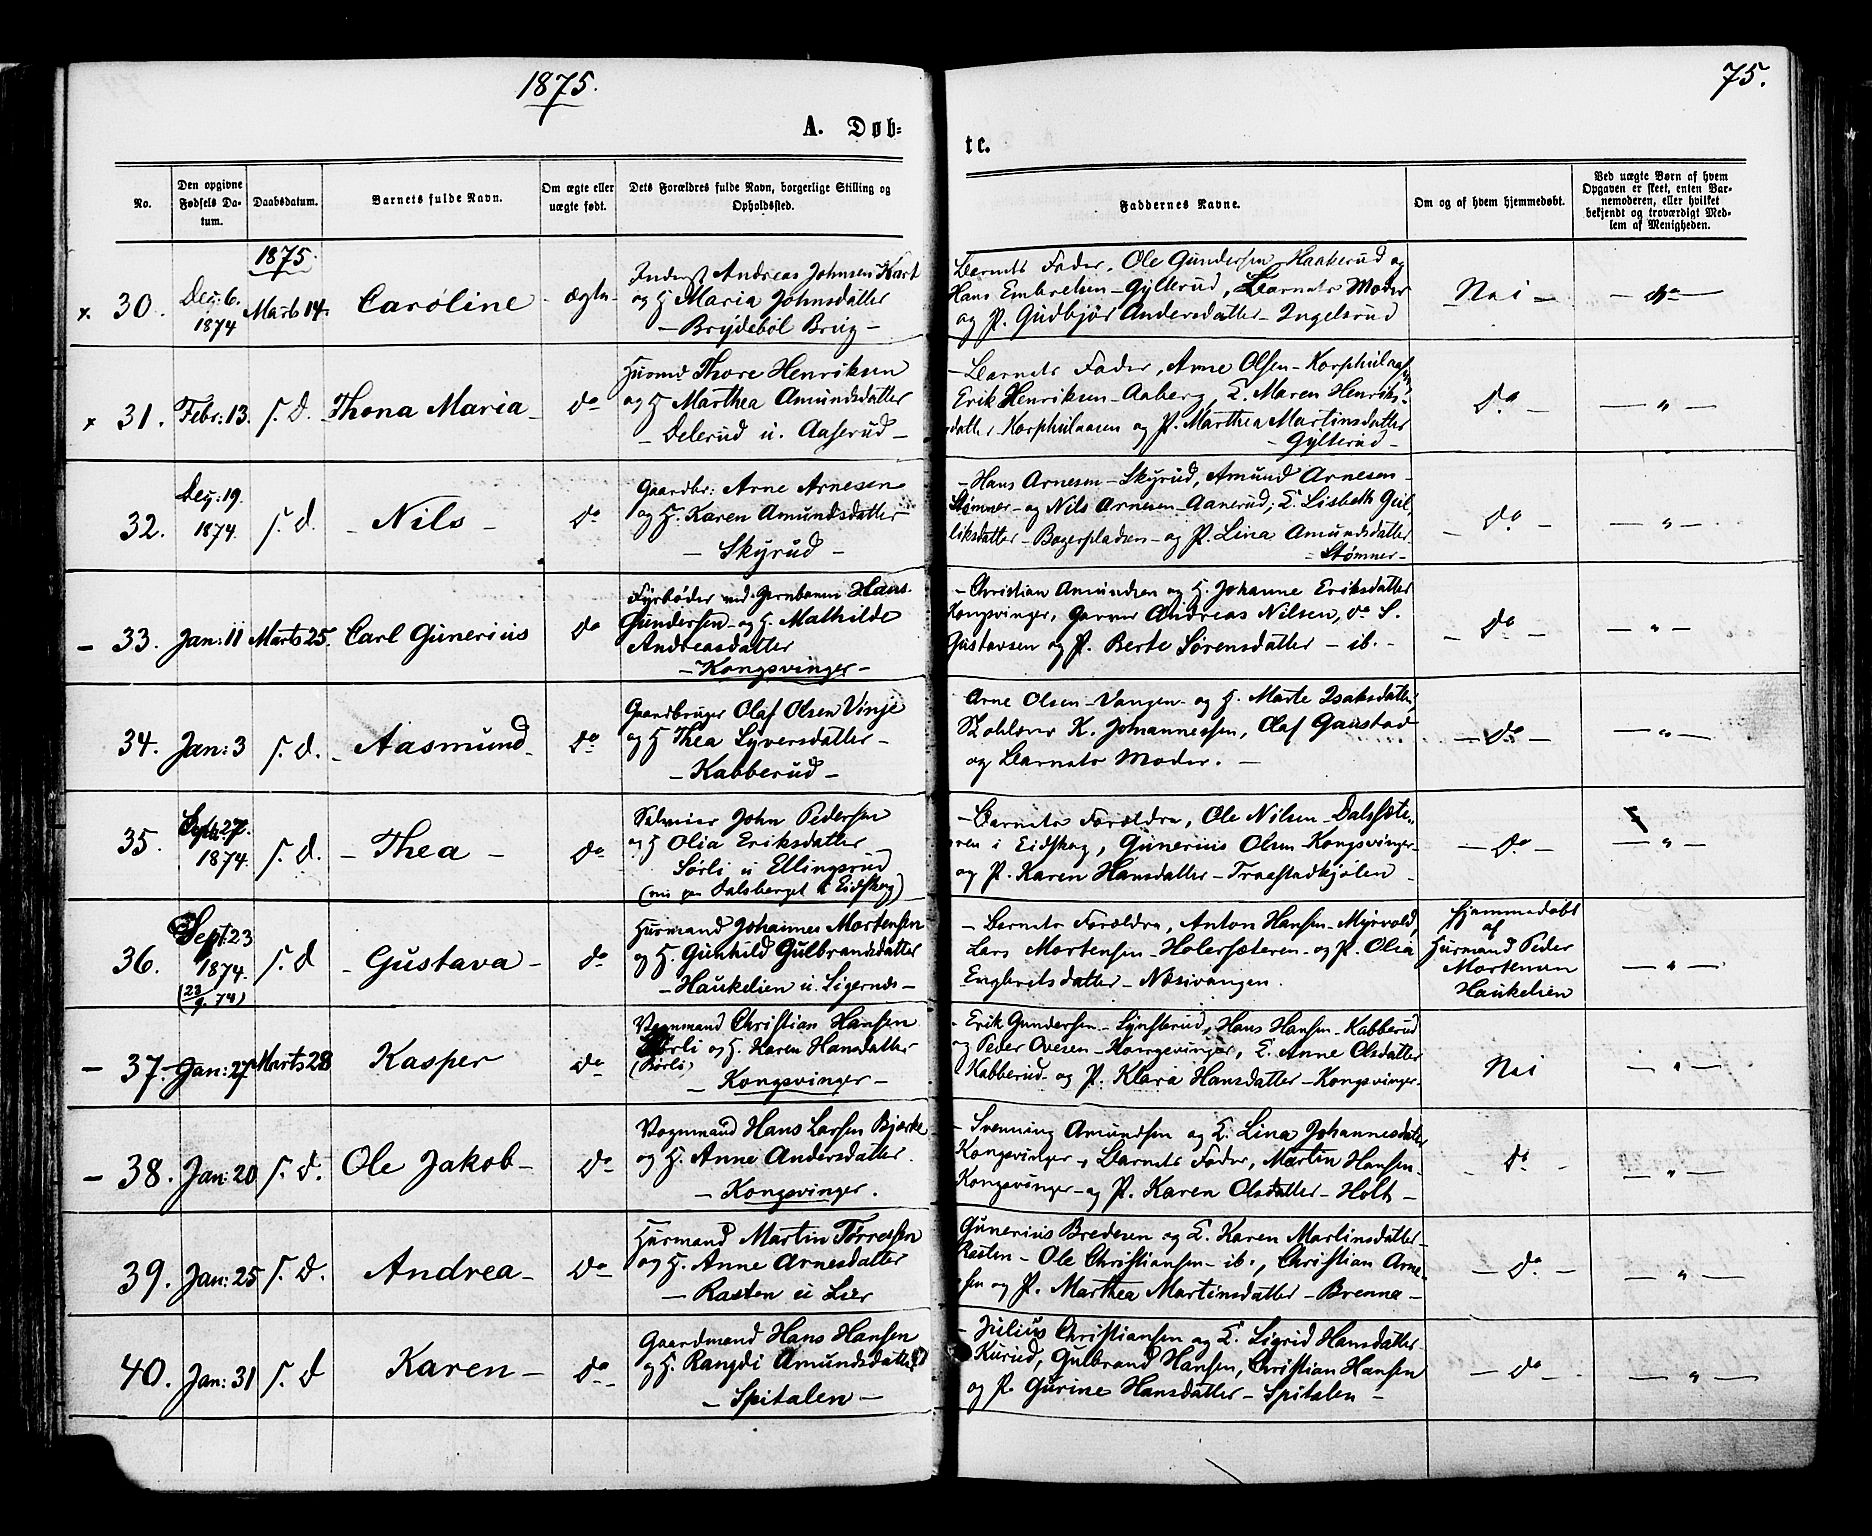 1875.
75.
A. Døb-
te.
No.
Den opgivne Fødsels Da-tum.
Daabsdatum.
Barnets fulde Navn.
Om ægte eller uægte født.
Dets Forældres fulde Navn, borgerlige Stilling og Opholdssted.
Faddernes Navne.
Om og af hvem hjemmedøbt.
Ved uægte Børn af hvem Opgaven er skeet, enten Bar-nemoderen, eller hvilket bekjendt og troværdigt Med-lem af Menigheden.
1875.
x. 30. Dec. 6. 1874 Marts 14. Caroline ægte
Inderst Andreas Johnsen Kart
og H Maria Johnsdatter
- Brydebøl Brug -
Barnets Fader, Ole Gundersen Haakerud og
Hans Embretsen - Gylterud, Barnets Moder
og P. Gudbjør Andersdatter - Ingelsrud
Nei -
x 31. Febr: 13. s. d. Thona Maria - do
Husmd Thore Henriksen
og H Marthea Amundsdatter
- Delerud u. Aaserud -
- Barnets Fader, Arne Olsen - Korphulaasen
Erik Henriksen - Aaberg, E. Maren Henriks-
datter Korphulaasen og P. Marthea Martinsdatter
- Gylterud -
do - - " -
32. Dec: 19. 1874. s. d. - Nils - do
Gaardbr: Arne Arnesen
og H. Karen Amundsdatter
- Skyrud -
- Hans Arnesen - Skyrud, Amund Arnesen -
Stømner - og Nils Arnesen - Aanerud; E. Lisbeth Gul-
liksdatter - Bagerpladsen - og P. Lina Amundsdatter
- Stømner -
- do - - " -
- 33. Jan: 11 Marts 25. Carl Gunerius do
Fyrbøder ved Jernbanen Hans
Gundersen - og H. Mathilde
Andreasdatter
- Kongsvinger -
- Christian Amundsen og H. Johanne Eriksdatter
Kongsvinger, Garver Andreas Nilsen, do S.
Gustavsen og P. Berte Sørensdatter - ib. -
- do - - " -
34. Jan: 3 s. d. - Aasmund - do
Gaardbruger Olaf Olsen Vinje
og H Thea Syversdatter -
- Kabberud -
Arne Olsen - Vangen - og H. Marte Isaksdatter,
Skolelærer K. Johannessen, Olaf Gaustad
og Barnets Moder. -
- do - - " -
35. Septb: 27. 1874. s. d. - Thea - do
Selveier John Pedersen
og H Olia Eriksdatter
Sørli u Ellingsrud
- Barnets Forældre, Ole Nilsen - Dalssæte-
ren i Eidskog, Gunerius Olsen - Kongsvinger -
og P. Karen Hansdatter - Traastadkjølen -
- do - - " -
36. Sept: 23 1874. (23/9. 74) s. d - Gustava - do
Husmand Johannes Mortensen
og H. Gunhild Gulbrandsdatter
- Haukelien u. Ligernes -
- Barnets Forældre, Anton Hansen - Myrvold,
Lars Mortensen - Holersæteren - og P. Olia
Engbretsdatter - Næsivangen.
Hjemmedøbt
af
Husmand Peder
Mortensen
Haukelien
- " -
- 37. - Jan: 27 Marts 28 Kasper do
Vognmand Christian Hansen
Sørli og H. Karen Hansdatter
(Sørli)
- Kongsvinger -
- Erik Gundersen - Lynsterud, Hans Hansen - Kabberud
og Peder Ovesen - Kongsvinger, E. Anne Olsdatter
Kabberud - og P. Klara Hansdatter - Kongsvinger.
Nei - " -
- 38. Jan: 20 s. d. Ole Jakob - do
Vognmand Hans Larsen Bjerke
og H. Anne Andersdatter.
- Kongsvinger.
- Svenning Amundsen og E. Lina Johannesdatter
Kongsvinger, Barnets Fader, Martin Hansen -
Kongsvinger - og P. Karen Olsdatter - Holt -
- do - - " -
39. Jan: 25 s. d. Andrea - do
Husmand Martin Torressen
og H. Anne Arnesdatter
- Rasten u Lier
Gunerius Bredesen og E. Karen Martinsdatter -
Rasten - Ole Christiansen - ib., Christian Arne-
sen og P. Marthea Martinsdatter - Brenna -
- do - - " -
40. Jan: 31 s. d Karen - do
Gaardmand Hans Hansen
og H Rangdi Amundsdatter
- Spitalen -
- Julius Christiansen og E. Sigrid Hansdatter
Kurud, Gulbrand Hansen, Christian Hansen
og P. Gurine Hansdatter - Spitalen -
- do - - " -